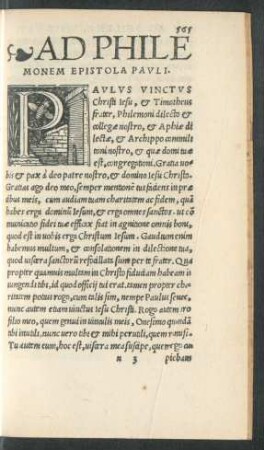 565
AD PHILE
MONEM EPISTOLA PAVLI.
PAVLVS VINCTVS
Christi Iesu, & Timotheus
frater, Philemoni dilecto &
collegæ nostro, & Aphiæ di
lectæ, & Archippo commili
toni nostro, & quæ domi tuæ
est, congregationi. Gratia uo
bis & pax à deo patre nostro, & domino Iesu Christo.
Gratias ago deo meo, semper mentionē tui faciens in præ
cibus meis, cum audiam tuam charitatem ac fidem, quā
habes erga dominū Iesum, & erga omnes sanctos. ut cō
municatio fidei tuæ efficax fiat in agnitione omnis boni,
quod est in uobis erga Christum Iesum. Gaudium enim
habemus multum, & consolationem in dilectione tua,
quod uiscera sanctorū refocillata sunt per te frater. Qua
propter quamuis multam in Christo fiduciam habeam in
iungendi tibi, id quod officij tui erat. tamen propter cha
ritatem potius rogo, cum talis sim, nempe Paulus senex,
nunc autem etiam uinctus Iesu Christi. Rogo autem pro
filio meo, quem genui in uinculis meis, Onesimo quondā
tibi inutili, nunc uero tibi & mihi perutili, quem remisi.
Tu autem eum, hoc est, uiscera mea suscipe, quem ego cu
n 3 piebam